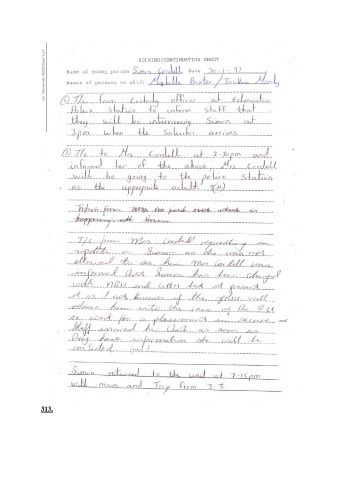 ROVING/CONTINUATION SHEET
Name of young person Simon Cordell Date 30-1-97
Names of persons on shift
① T/c from Custody officer at Edmonton
Police Station to inform staff that
they will be interviewing Simon at
3pm when the Solicitor arrives
② T/c to Mrs Cordell at 2-30pm and
informed her of the above, Mrs Cordell
will be going to the police Station
as the appropriate adult.
happening with Simon
T/c from Mrs Cordell requesting an
update on Simon as she was not
allowed to see him. Mrs Cordell was
informed that Simon has been charged
with and but at present
it is not known if the police will
return him into the care of the
or wait for a placement in secure
Staff assured her that as soon as
they have information she will be
contacted
Simon returned to the unit at 7-15pm
with mum and from
313.